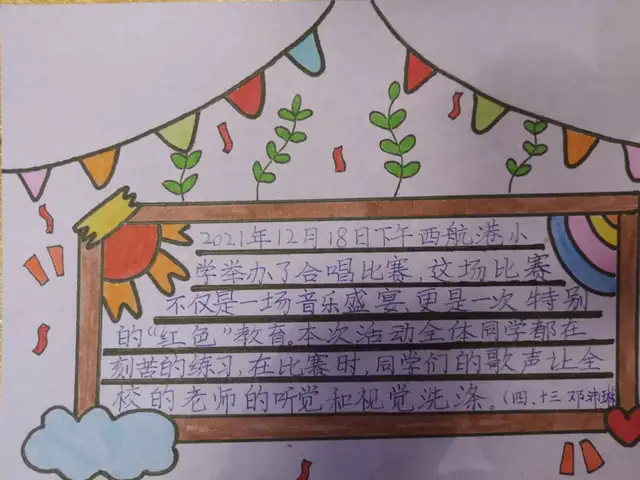 2021年12月18日下午西航港小
学举办了合唱比赛,这场比赛
不仅是一场音乐盛宴,更是一次特别
的“红色”教育。本次活动全体同学都在
刻苦的练习,在比赛时,同学们的歌声让全
校的老师的听觉和视觉洗涤。(四.十三 邓沛琳